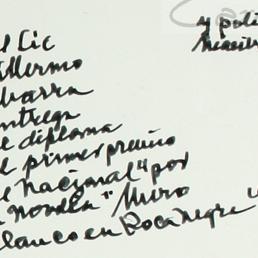 l Lic
llermo
barra
ntrega
e diploma
l primer premio
e nacional "por
novela "Muro
lanco en Roca Negra"
y polí